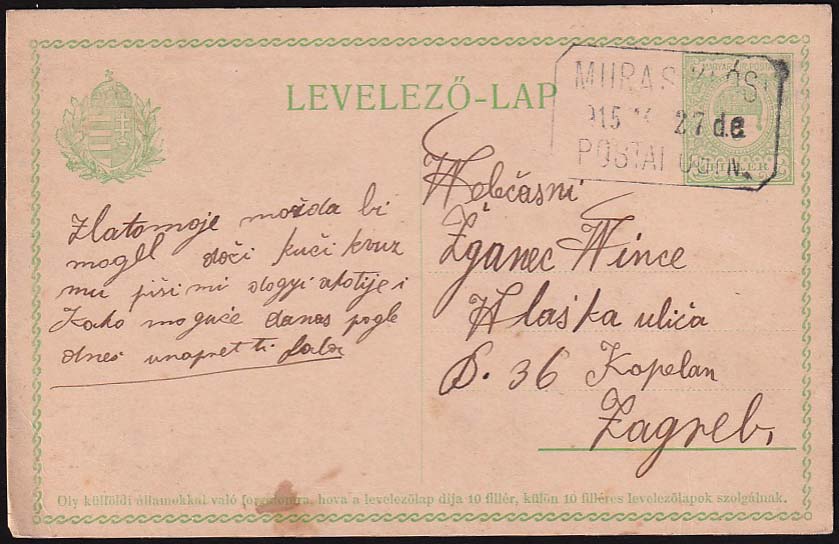 LEVELEZŐ-LAP
MAGYAR KIR. POSTA
915 27 d.e.
POSTAI ÜGYN.
Zlatomoje možda bi
mogel doči kuči kruz
mu piši mi
Kako moguče danas pogle
dnes unapret ti
Velečasni
Žganec Wince
Vlaška uliča
B. 36 Kapelan
Zagreb,
Oly külföldi államokkal való forgalomra, hova a levelezőlap díja 10 fillér, külön 10 filléres levelezőlapok szolgálnak.